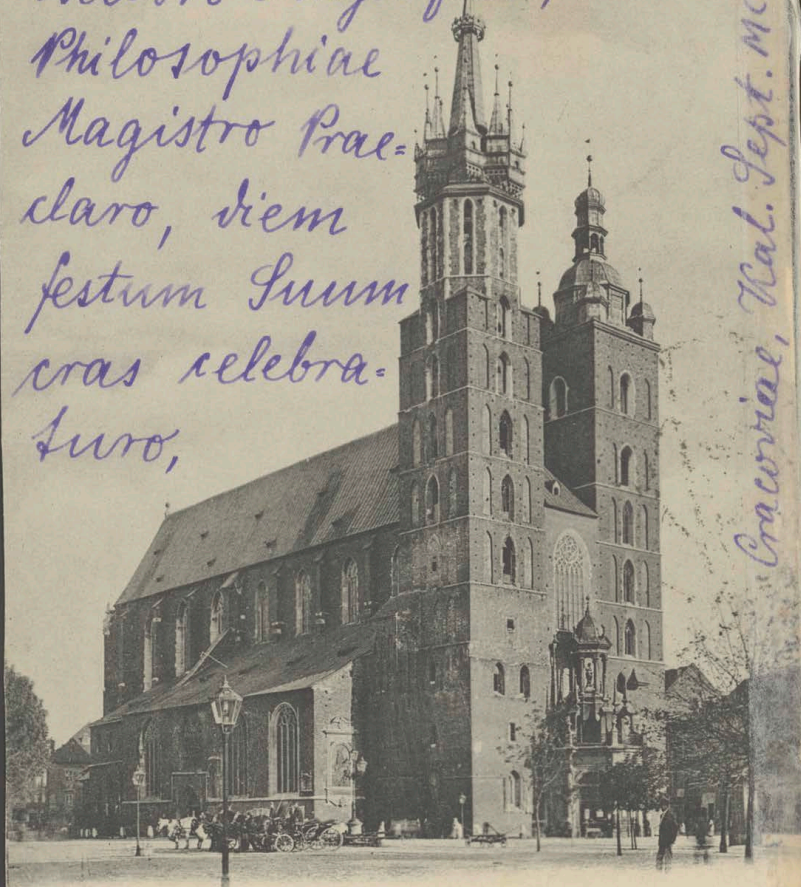 Philosophiae
Magistro Prae=
claro, diem
festum Suum
cras celebra=
turo,
Cracoviae, Kal. Sept. MC